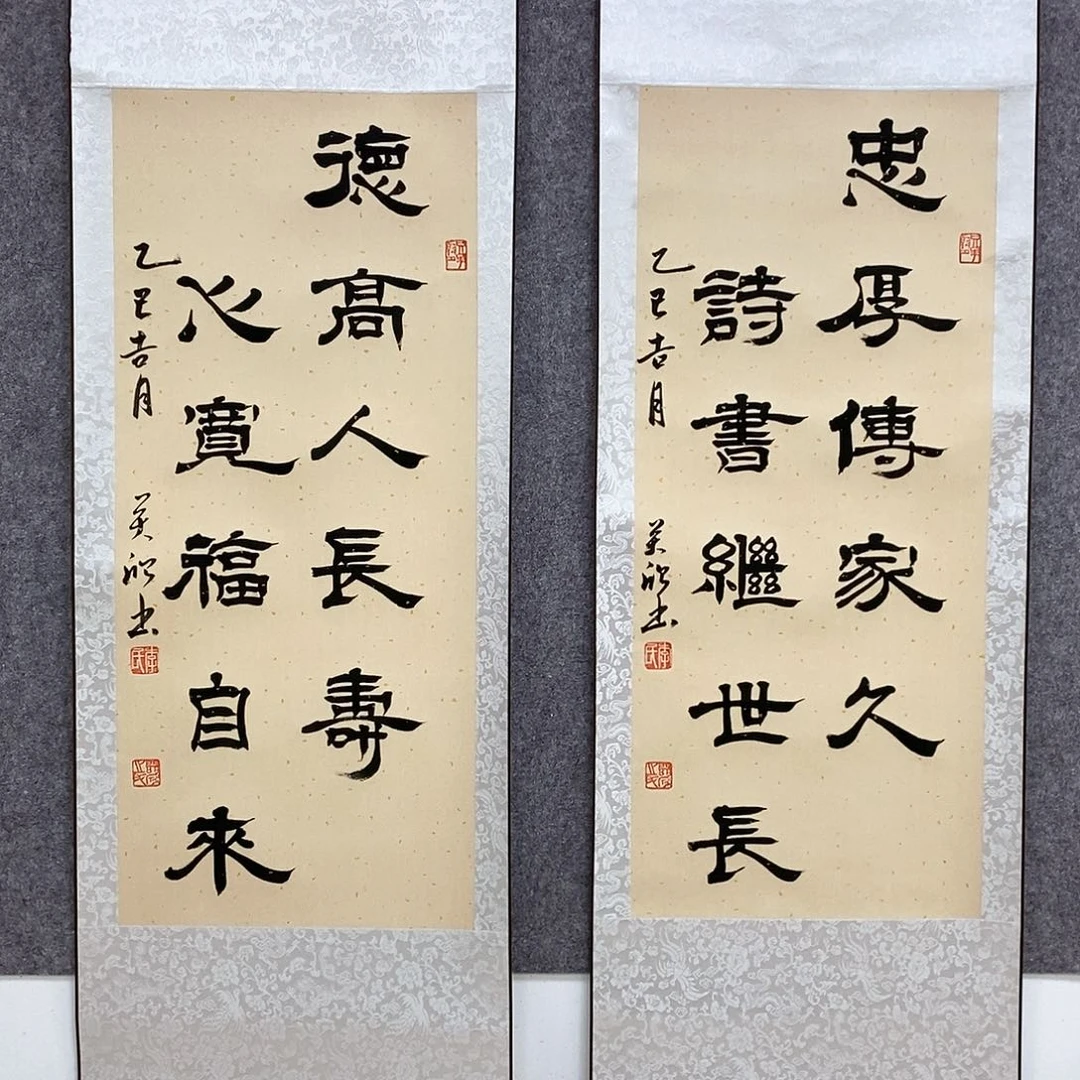 忠厚傳家久
詩書繼世長
乙巳吉月
書
德高人長壽
心寬福自來
乙巳吉月
書